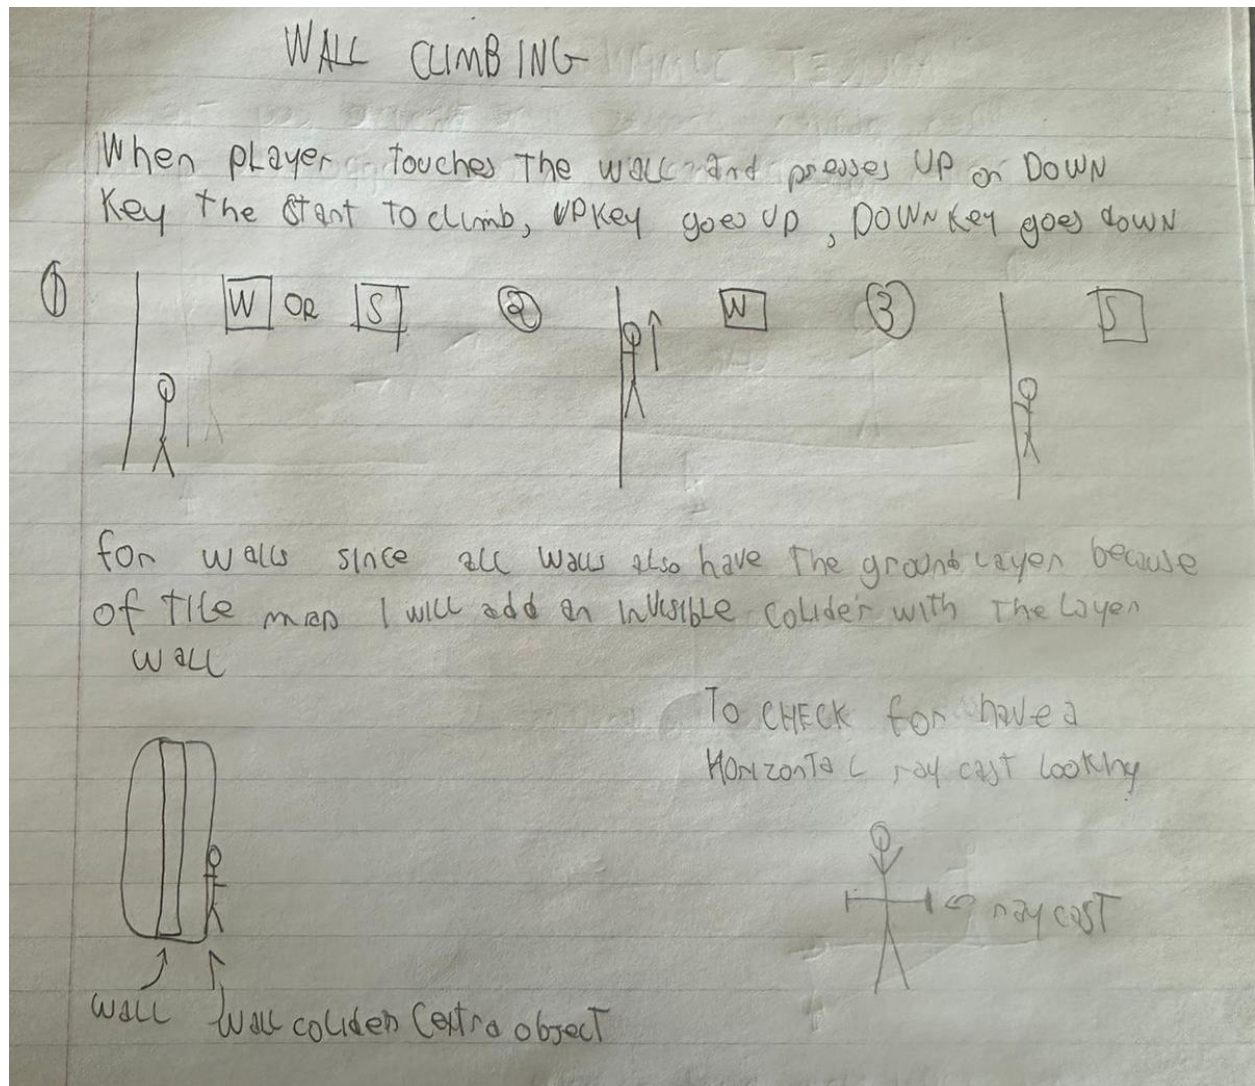 WALL CLIMBING
When player touches The wall and presses UP or DOWN
Key the start to climb, UP Key goes UP, DOWN Key goes down
1 W OR S 2 W 3 S
for walls since all walls also have the ground layer because
of tile map I will add an invisible colider with the layer
wall
To CHECK for have a
Horizontal ray cast looking
ray cast
wall wall colider (extra object